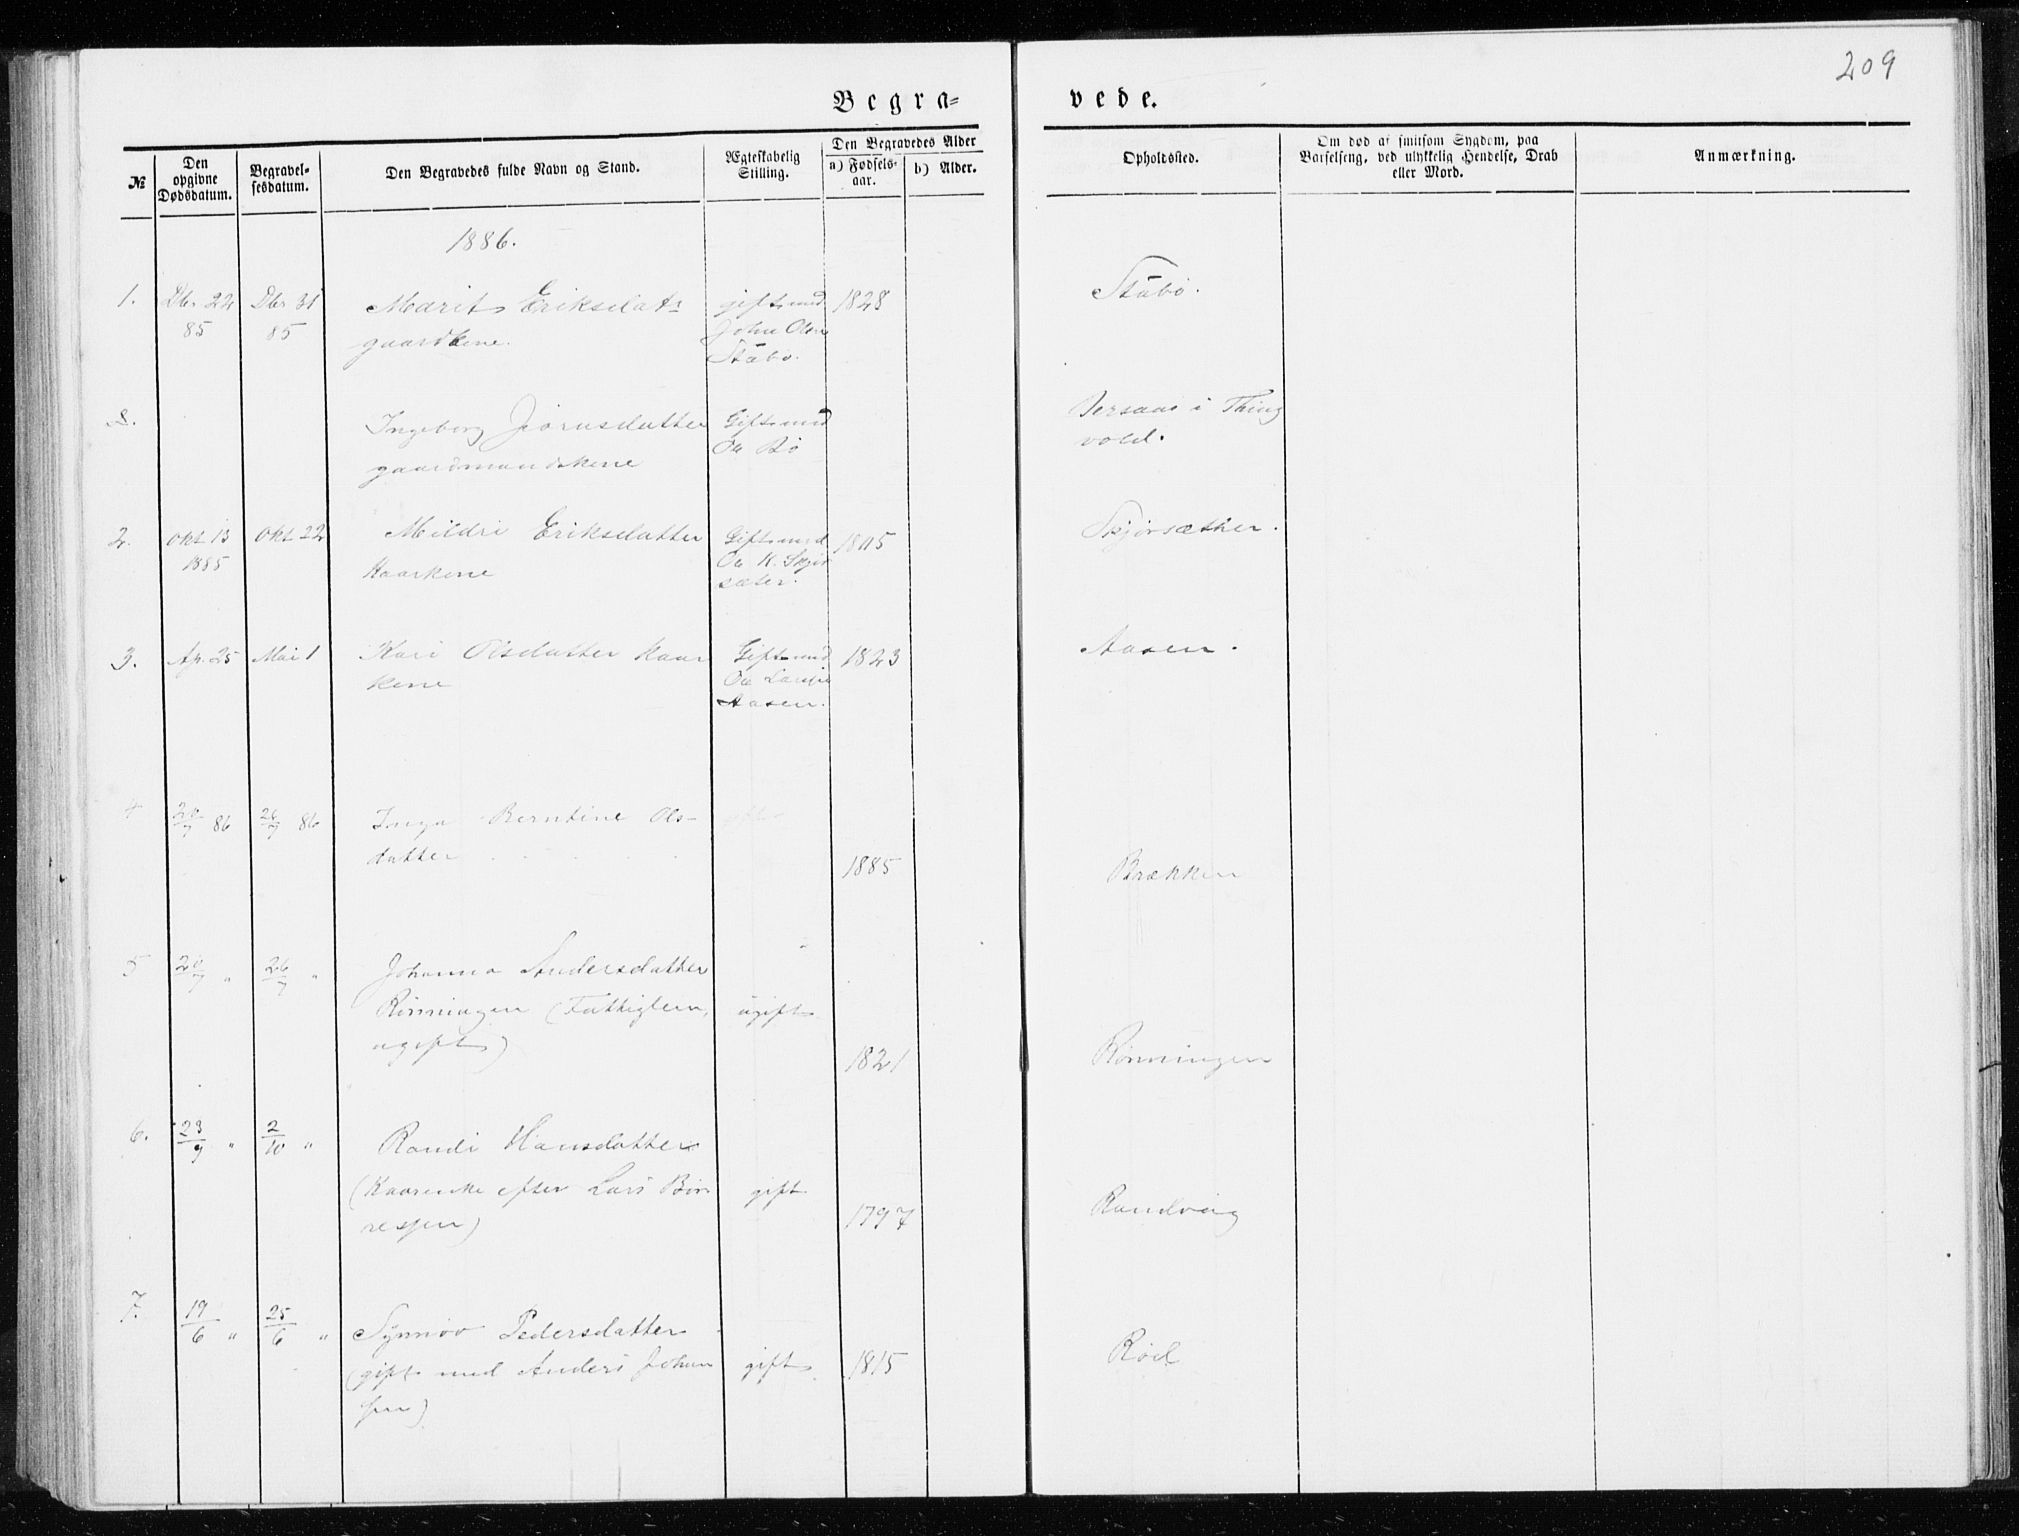 209
Begra=
vede.
№
Den opgivne Dødsdatum.
Begravel-sesdatum.
Den Begravedes fulde Navn og Stand.
Ægteskabelig Stilling.
Den Begravedes Alder
a) Fødsels-aar.
b) Alder.
Opholdssted.
Om død af smitsom Sygdom, paa
Barselseng, ved ulykkelig Hendelse, Drab
eller Mord.
Anmærkning.
1886.
1. Dbr 22 Dbr 31 Marit Eriksdatr gift med 1828 Stäbö.
85 85 gaardkone. John Olsen
Stäbö.
Ingeborg Jörnsdatter Gift med i Thing
gaardmandskone Ole Bö vold.
2. Okt 13 Okt 22 Mildri Eriksdatter Gift med 1805 Skjörsæther.
1885 Kaarkone Ole K. Skjör
sæter.
3. Ap. 25 Mai 1 Kari Olsdatter kaar Gift med 1823 Aasen.
kone Ole
Aasen.
4 86 26/7 86 Inga Berntine Ols-
datter 1885 Brækken
5 20/7 " 26/7 " Johanna Andersdatter
Rönningen (Fattiglem, ugift
ugift) 1821 Rönningen
6. 23/9 " 2/10 " Randi Hansdatter
(Kaarenke efter Lars Bör gift
resen) 1797 Randvig
7. 19/6 " 25/6 " Synnöv Pedersdatter
(gift med Anders Johan gift 1815 Röel
sen)